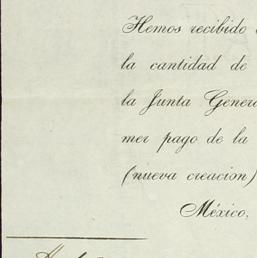 Hemos recibido
la cantidad de
la Junta Genera
mer pago de la
(nueva creacion)
México,